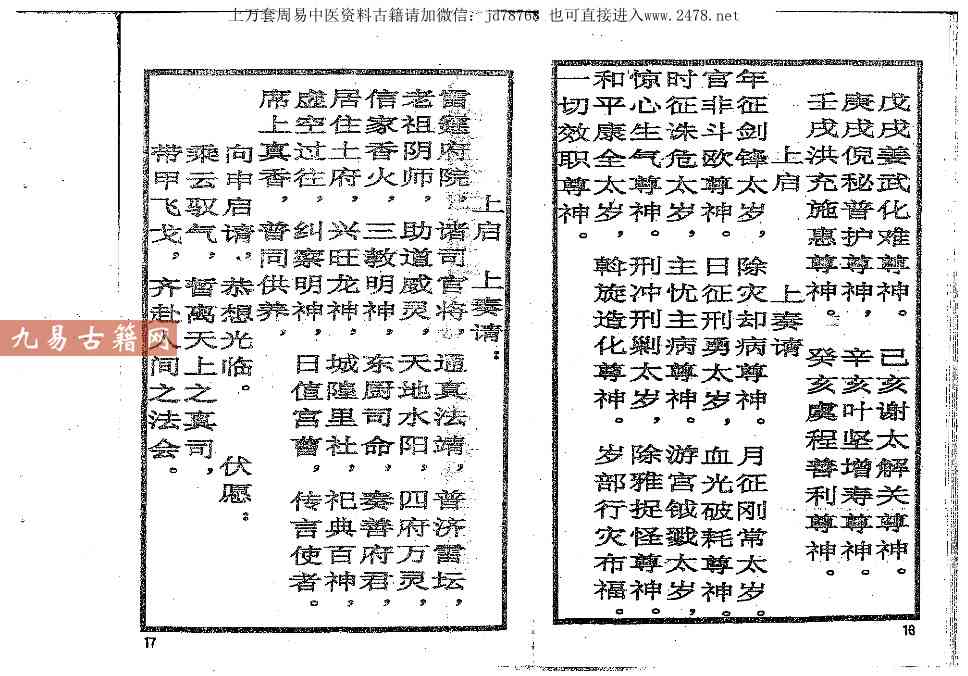 上万套周易中医资料古籍请加微信：jd78768 也可直接进入www.2478.net
戊戌姜武化难尊神。 己亥谢太解关尊神。
庚戌倪秘普护尊神， 辛亥叶坚增寿尊神。
壬戌洪充施惠尊神。 癸亥虞程善利尊神。
上启 上奏请
年征剑锋太岁， 除灾却病尊神。 月征刚常太岁。
官非斗欧尊神。 日征刑勇太岁， 血光破耗尊神。
时征诛危太岁， 主忧主病尊神。 游宫钺戮太岁，
惊心生气尊神。 刑冲刑剿太岁， 除雅捉怪尊神。
和平康全太岁， 斡旋造化尊神。 岁部行灾布福。
一切效职尊神。
18
上启 上奏请：
雷霆府院， 诸司官将， 通真法靖， 普济雷坛，
老祖阴师， 助道威灵， 天地水阳， 四府万灵，
信家香火， 三教明神， 东厨司命， 奏善府君，
居住土府， 兴旺龙神， 城隍里社， 祀典百神，
虚空过往， 纠察明神， 日值宫曹， 传言使者。
席上真香， 普同供养，
向申启请， 恭想光临。 伏愿：
乘云驭气， 暂离天上之真司，
带甲飞戈， 齐赴人间之法会。
17
九易古籍网